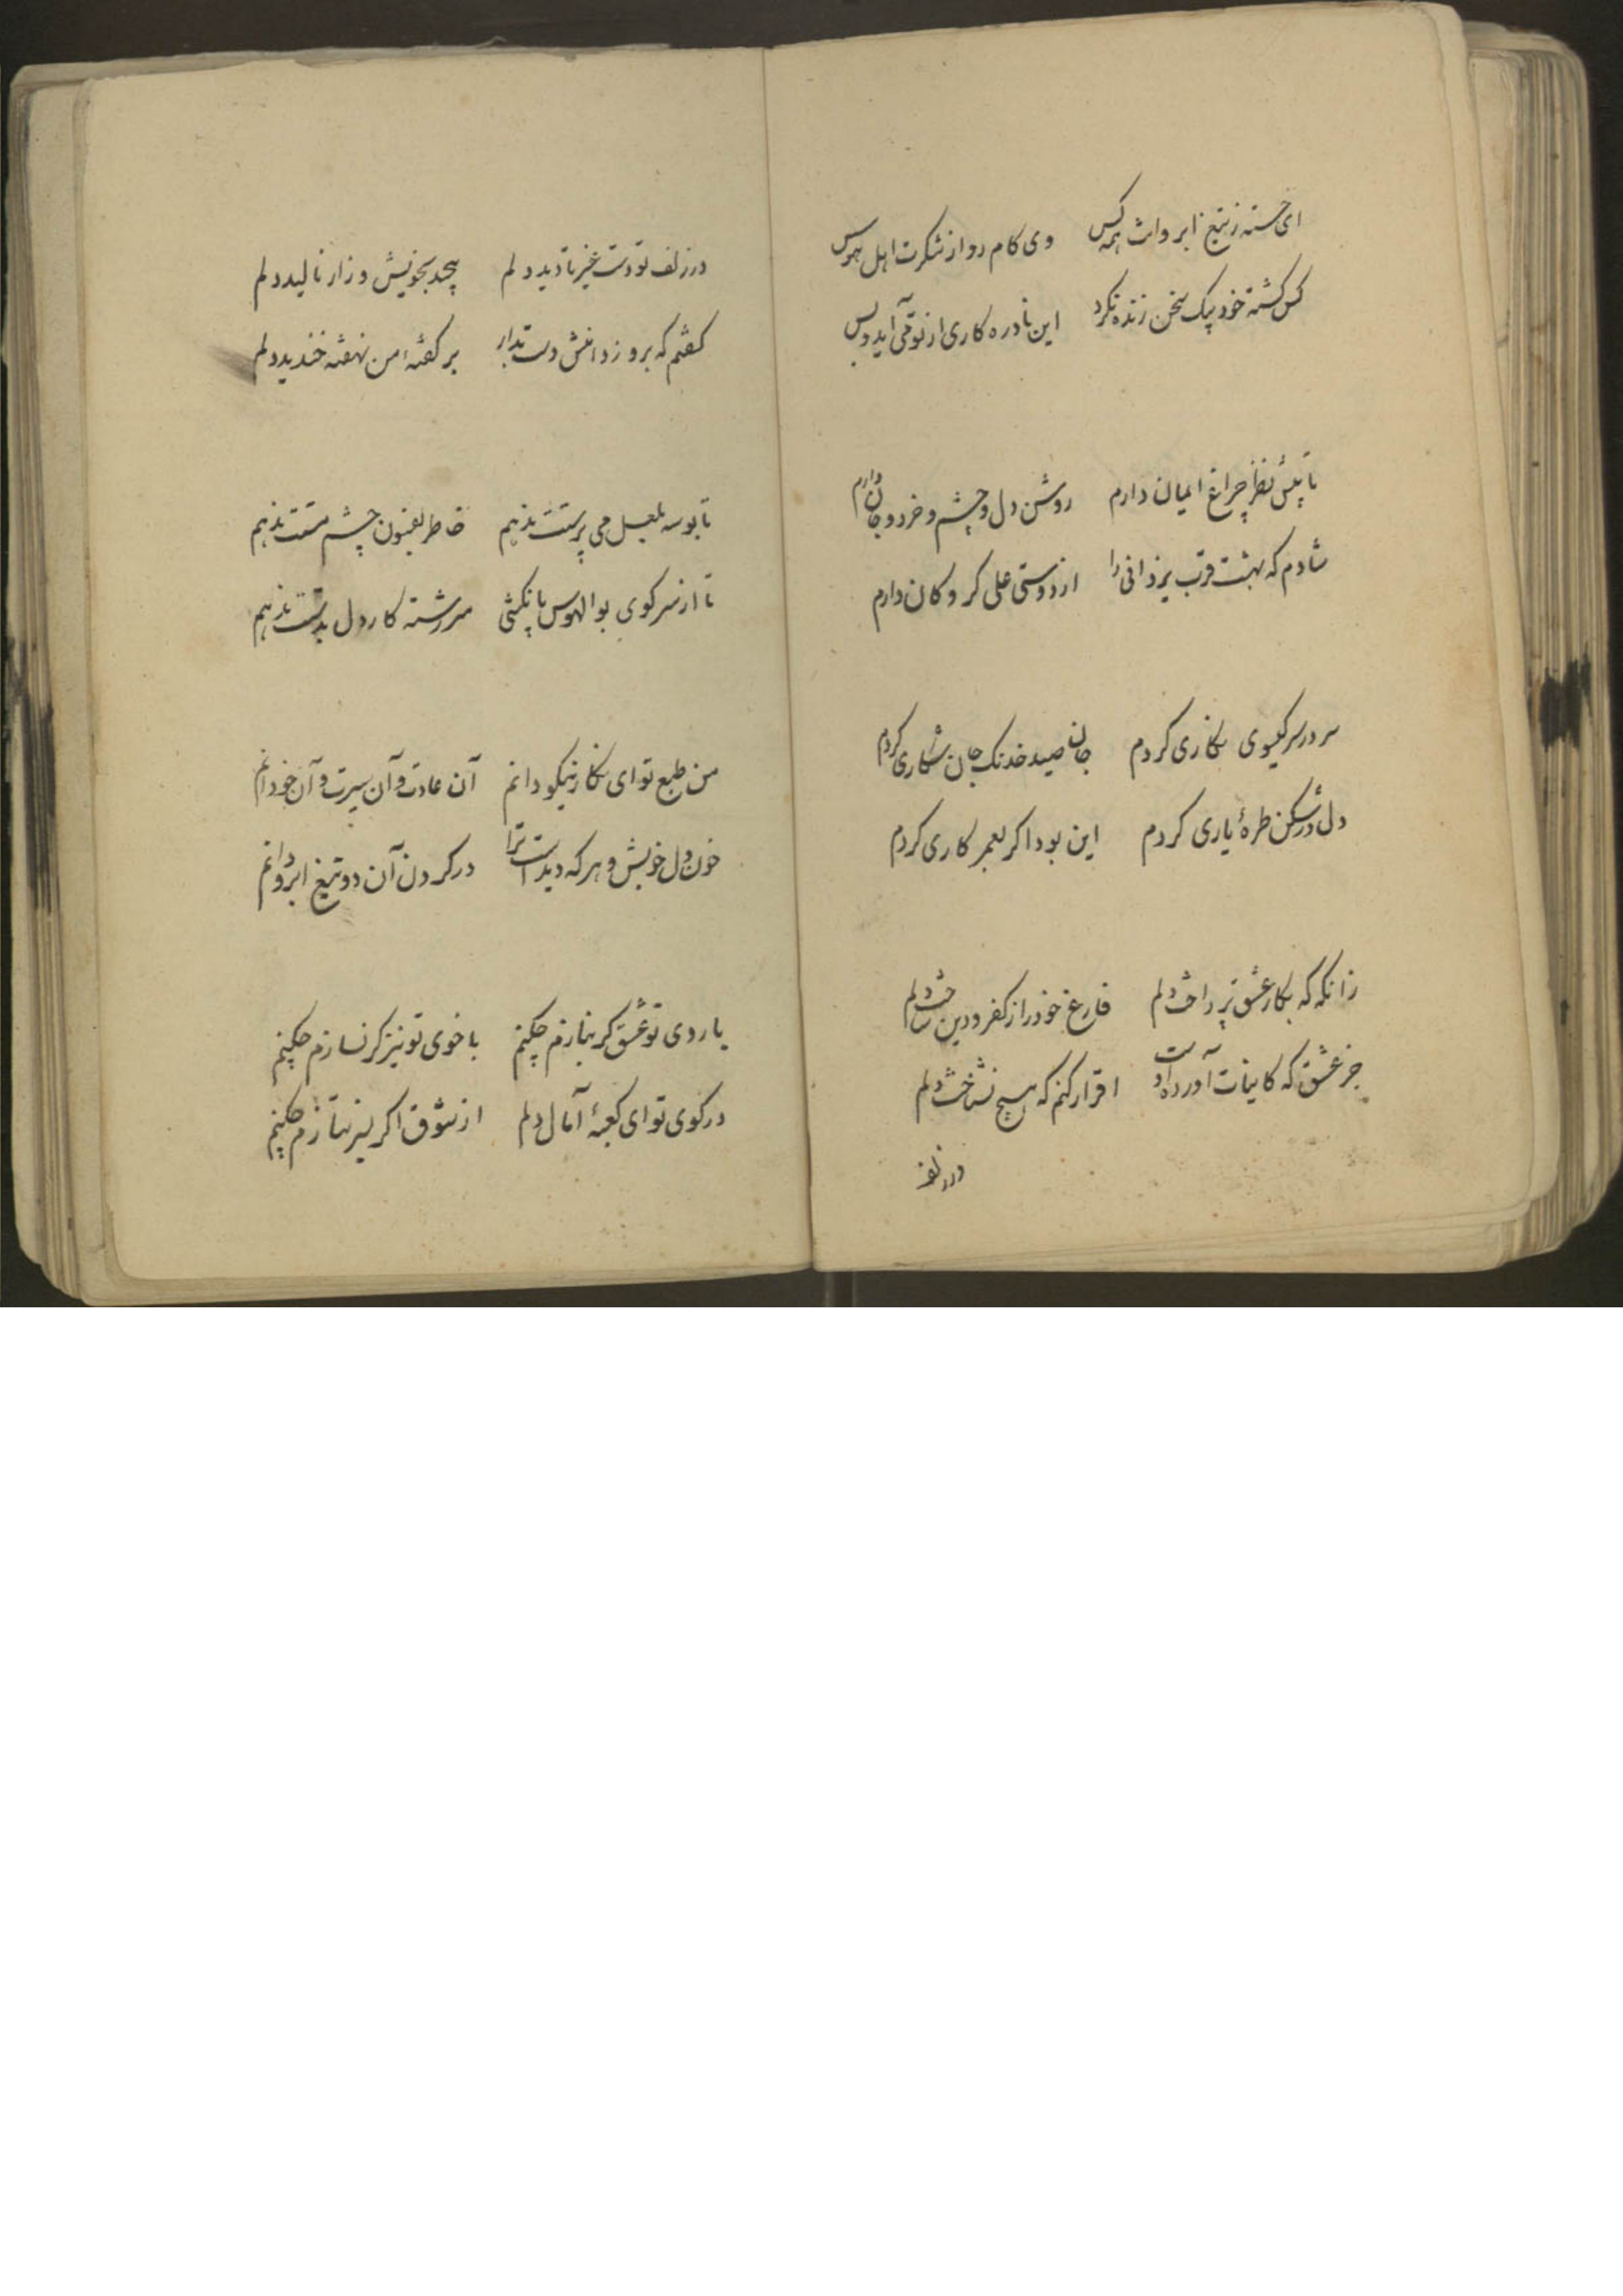 ای خسته ز تیغ ابروانت همه کس وی کام روا از شکرت اهل هوس
کس کشته خود بیک سخن زنده نکرد این نادره کاری از تو می‌آید و بس
تا پیش نظر چراغ ایمان دارم روشن دل و چشم و خرد و جان دارم
شادم که بهشت قرب یزدانی را از دوستی علی کروکان دارم
سر در سر کیسوی نکاری کردم جان صید خدنک جان شکاری کردم
دل در شکن طرهٔ یاری کردم این بود اکر بعمر کاری کردم
زانکه که بکار عشق پرداخت دلم فارغ خود را از کفر و دین ساخت دلم
جز عشق که کاینات آورده اوست اقرار کنم که هیچ نشناخت دلم
در زلف
در زلف تو دست غیر تا دید دلم پیچید بخویش و زار نالید دلم
کفتم که برو ز دامنش دست بدار بر کفتهٔ من نهفته خندید دلم
تا بوسه بلعل می پرستت ندهم خاطر بفسون چشم مستت ندهم
تا از سر کوی بوالهوس پا نکشی سررشته کار دل بدستت ندهم
من طبع تو ای نکار نیکو دانم آن عادت و آن سیرت و آن خو دانم
خون دل خویش و هر که دیدست ترا در کردن آن دو تیغ ابرو دانم
با روی تو عشق کر نبازم چکنم با خوی تو نیز کر نسازم چکنم
در کوی تو ای کعبهٔ آمال دلم از شوق اکر نیز نتازم چکنم